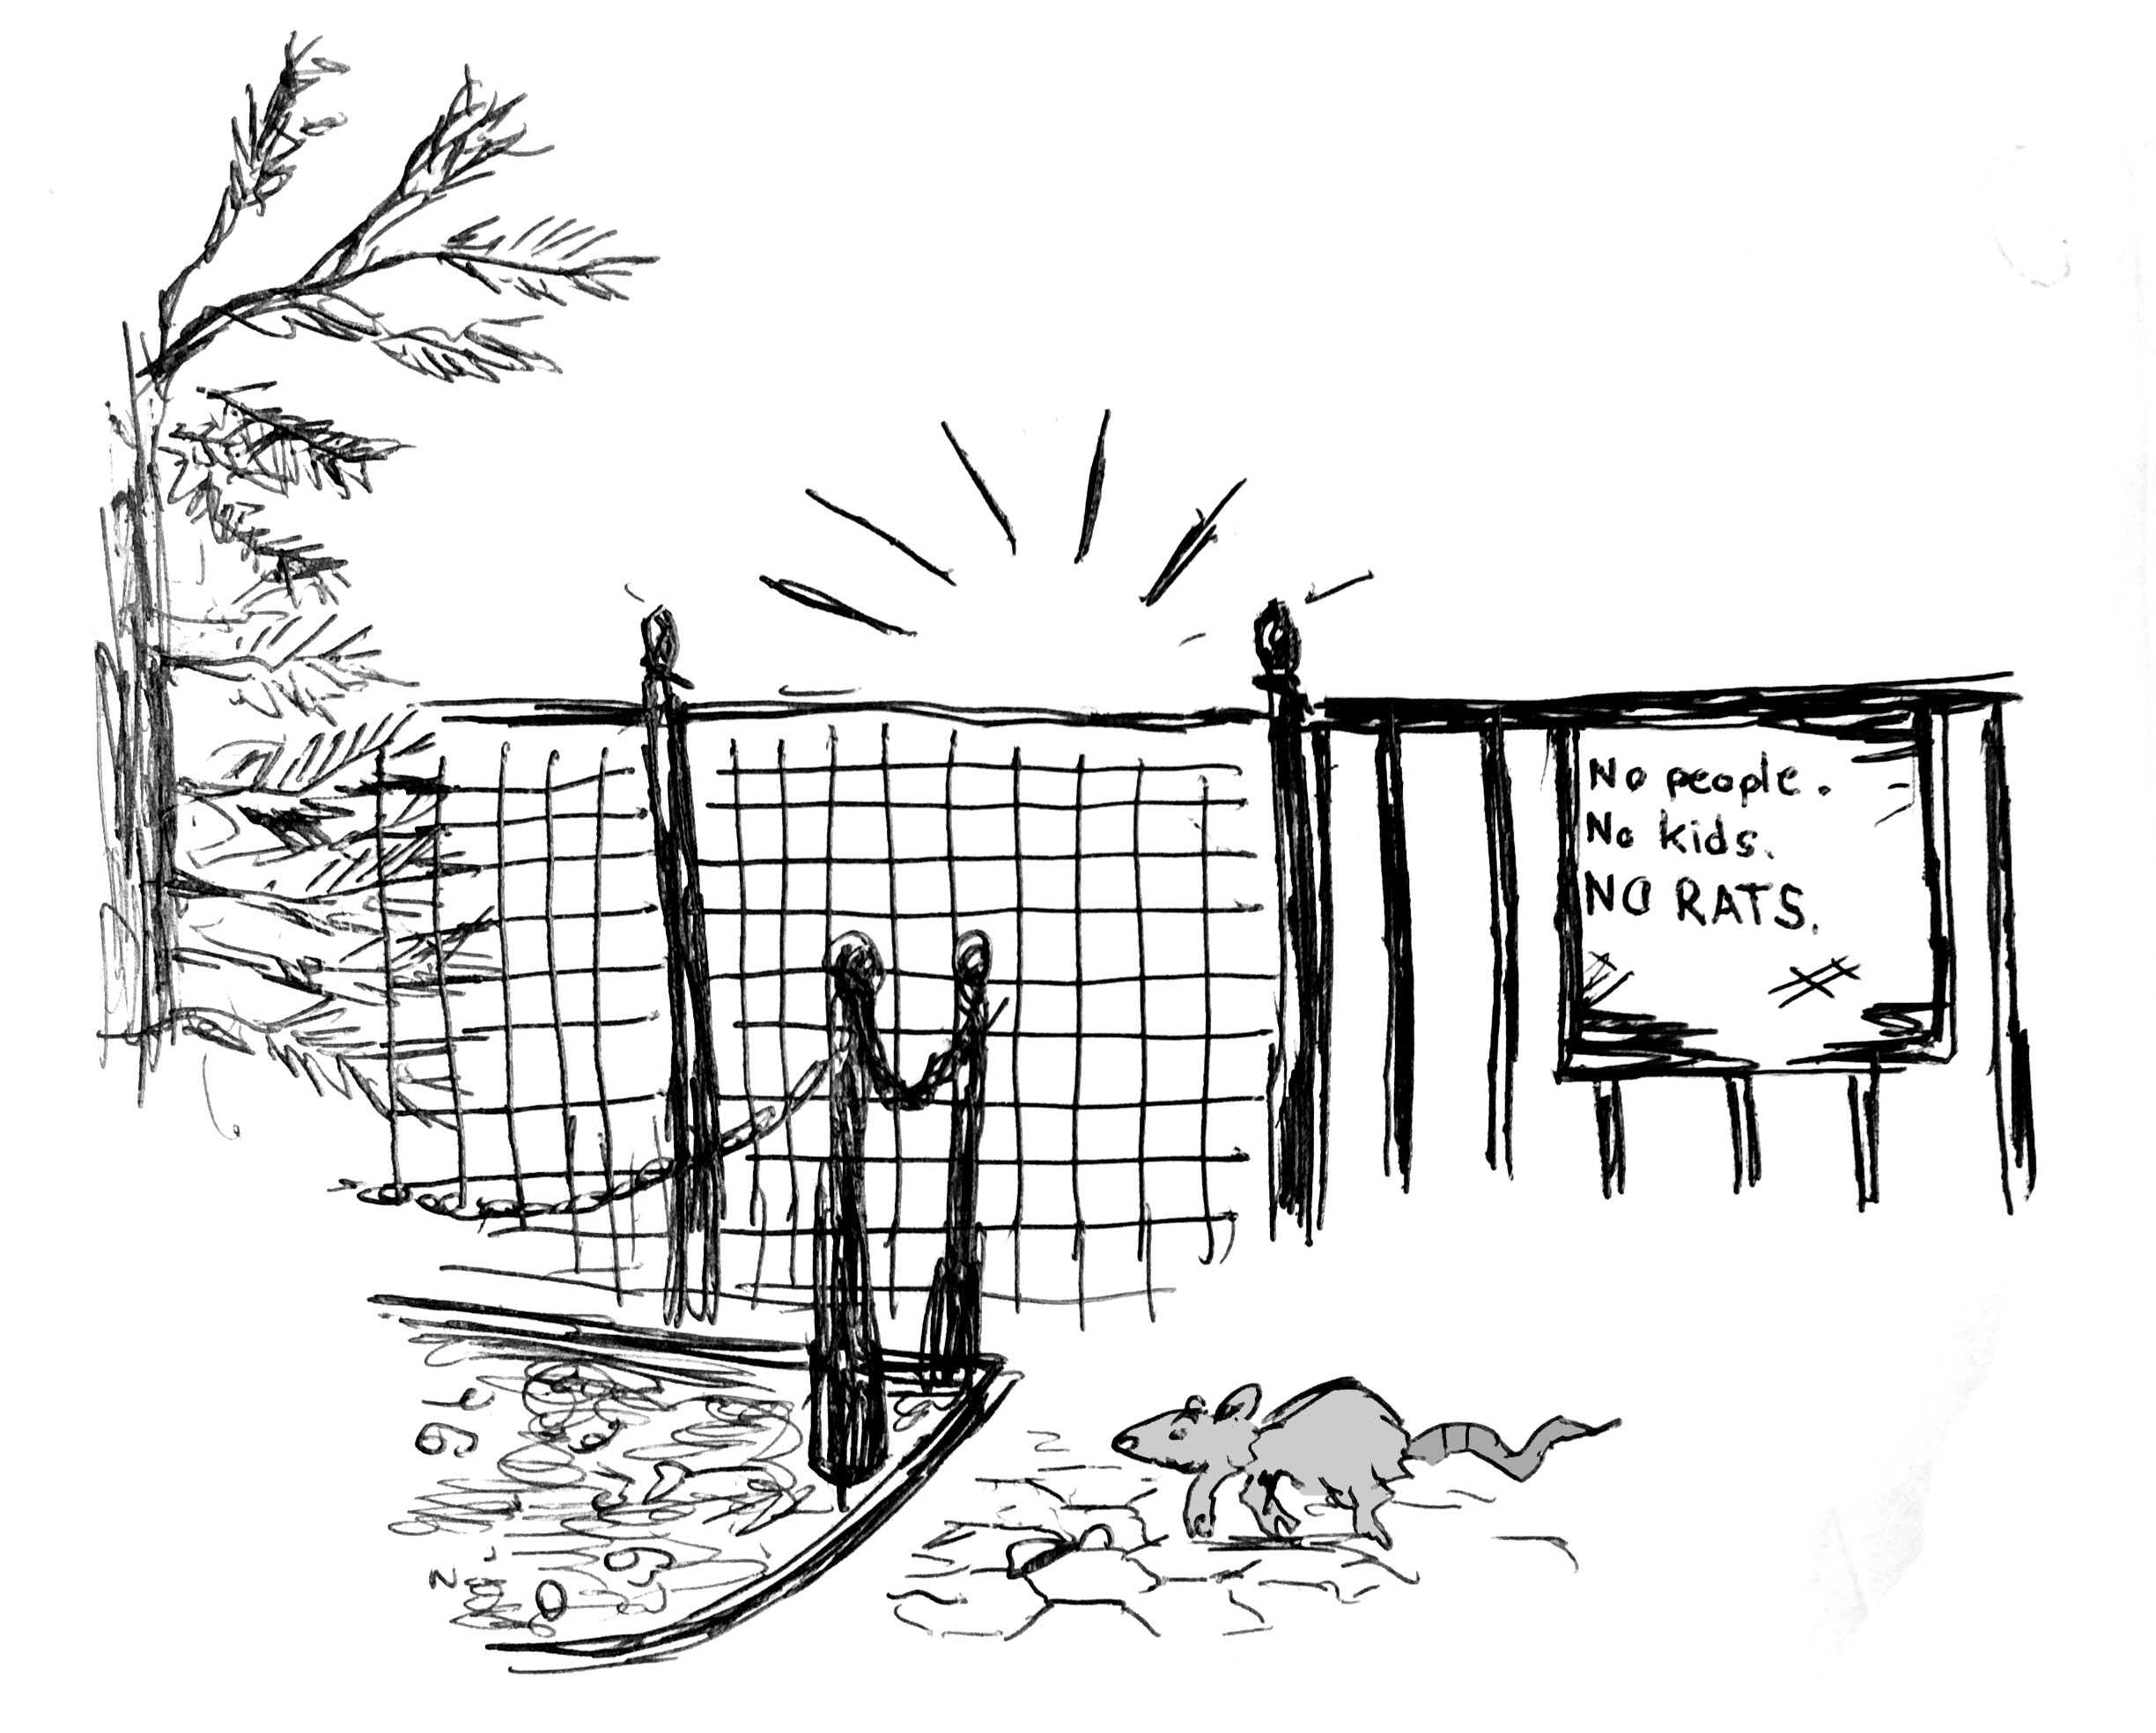 No people.
No kids.
NO RATS.